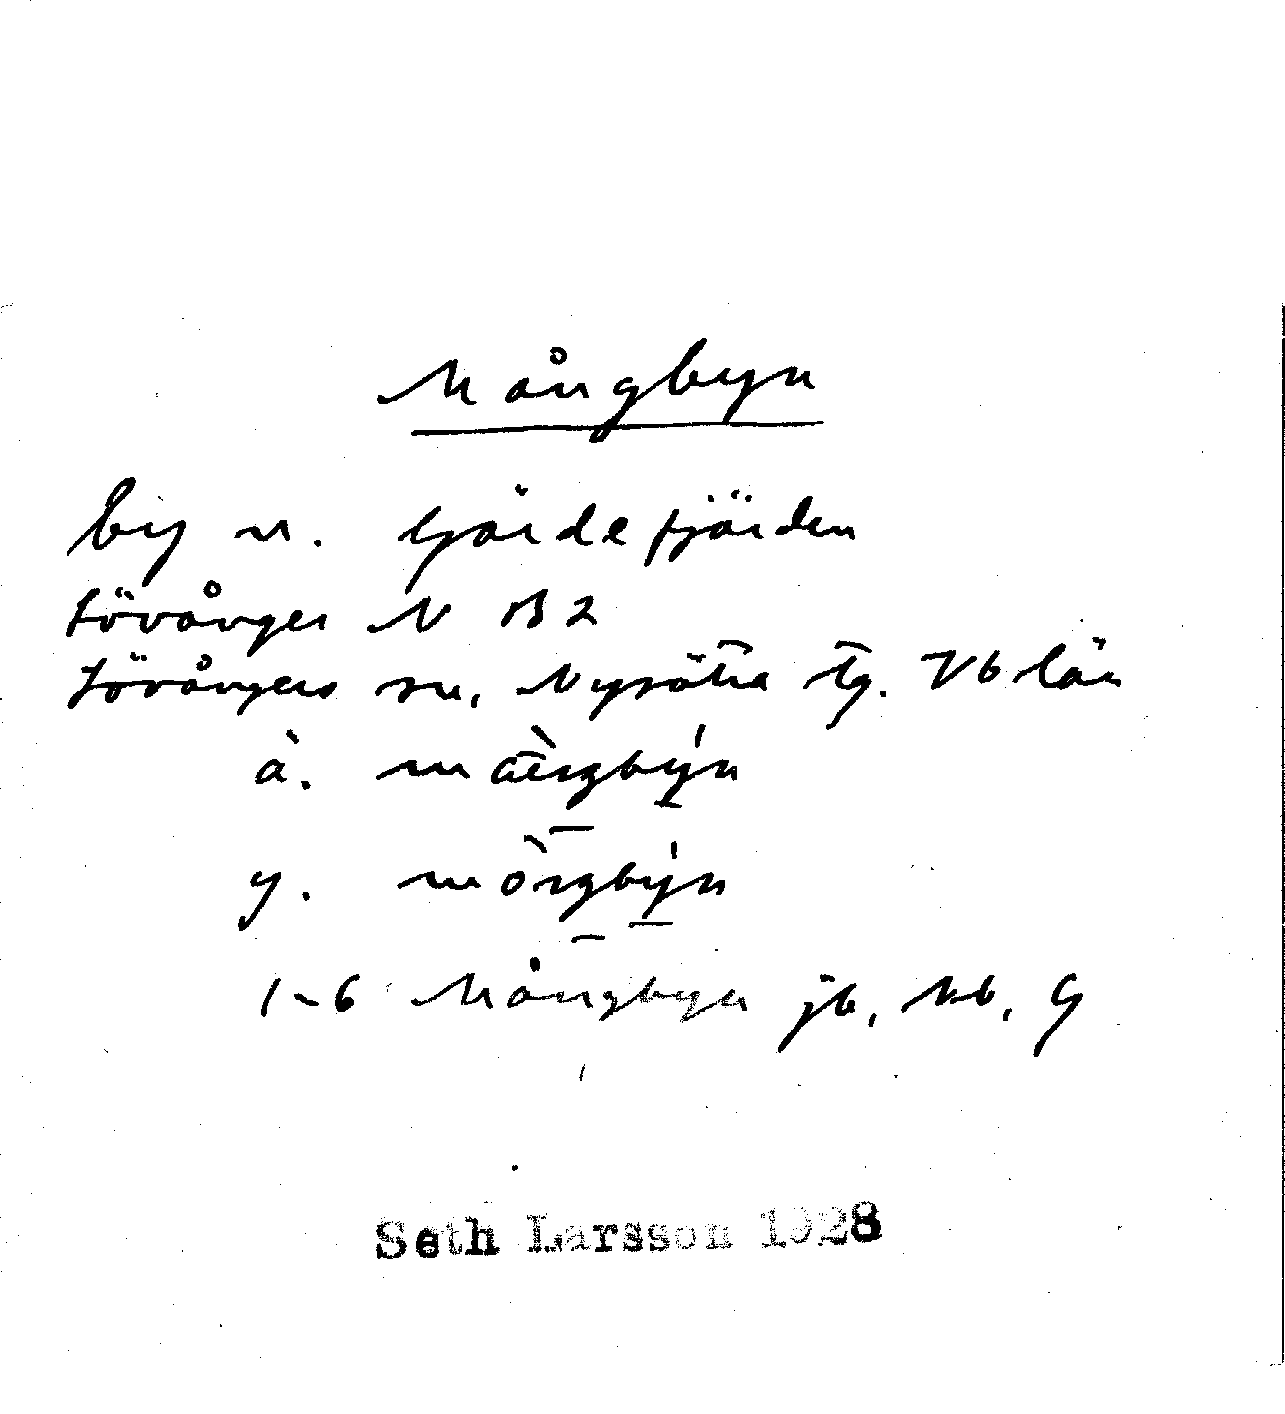 Mångbyn
by n. Gärdefjärden
Lövånger N B 2
Lövångers sn, Nysätra tg. Vb län
ä.
y.
1-6 Mångbyn jb, kb, G
Seth Larsson 1928